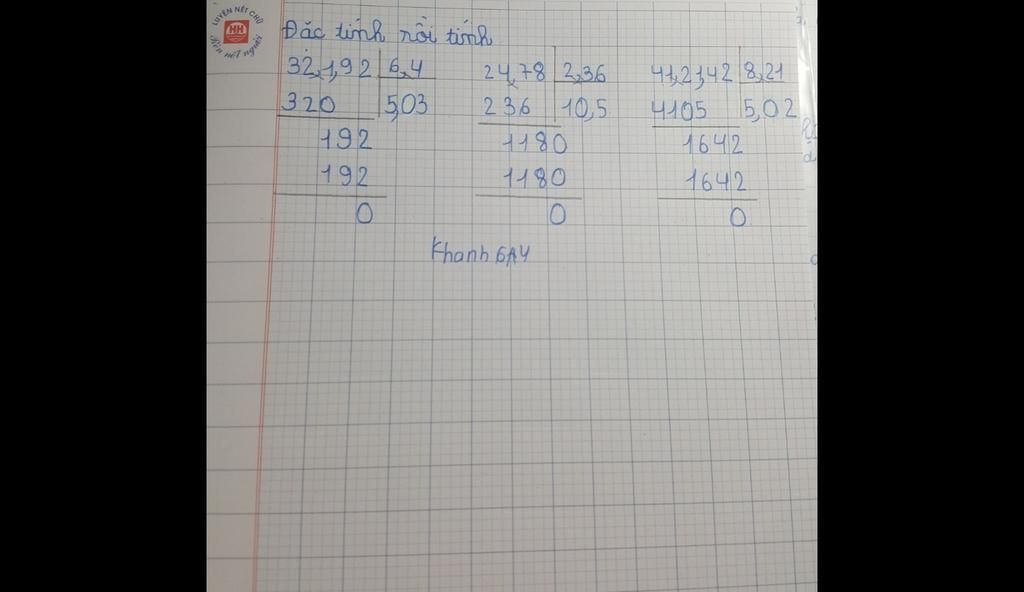 LUYỆN NÉT CHỮ
HH
Rèn nết người
Đặc tính rồi tính
32,1,92 6,4 24,78 2,36 41,21,42 8,21
320 5,03 236 10,5 4105 5,02
192 1180 1642
192 1180 1642
0 0 0
Khanh 6A4